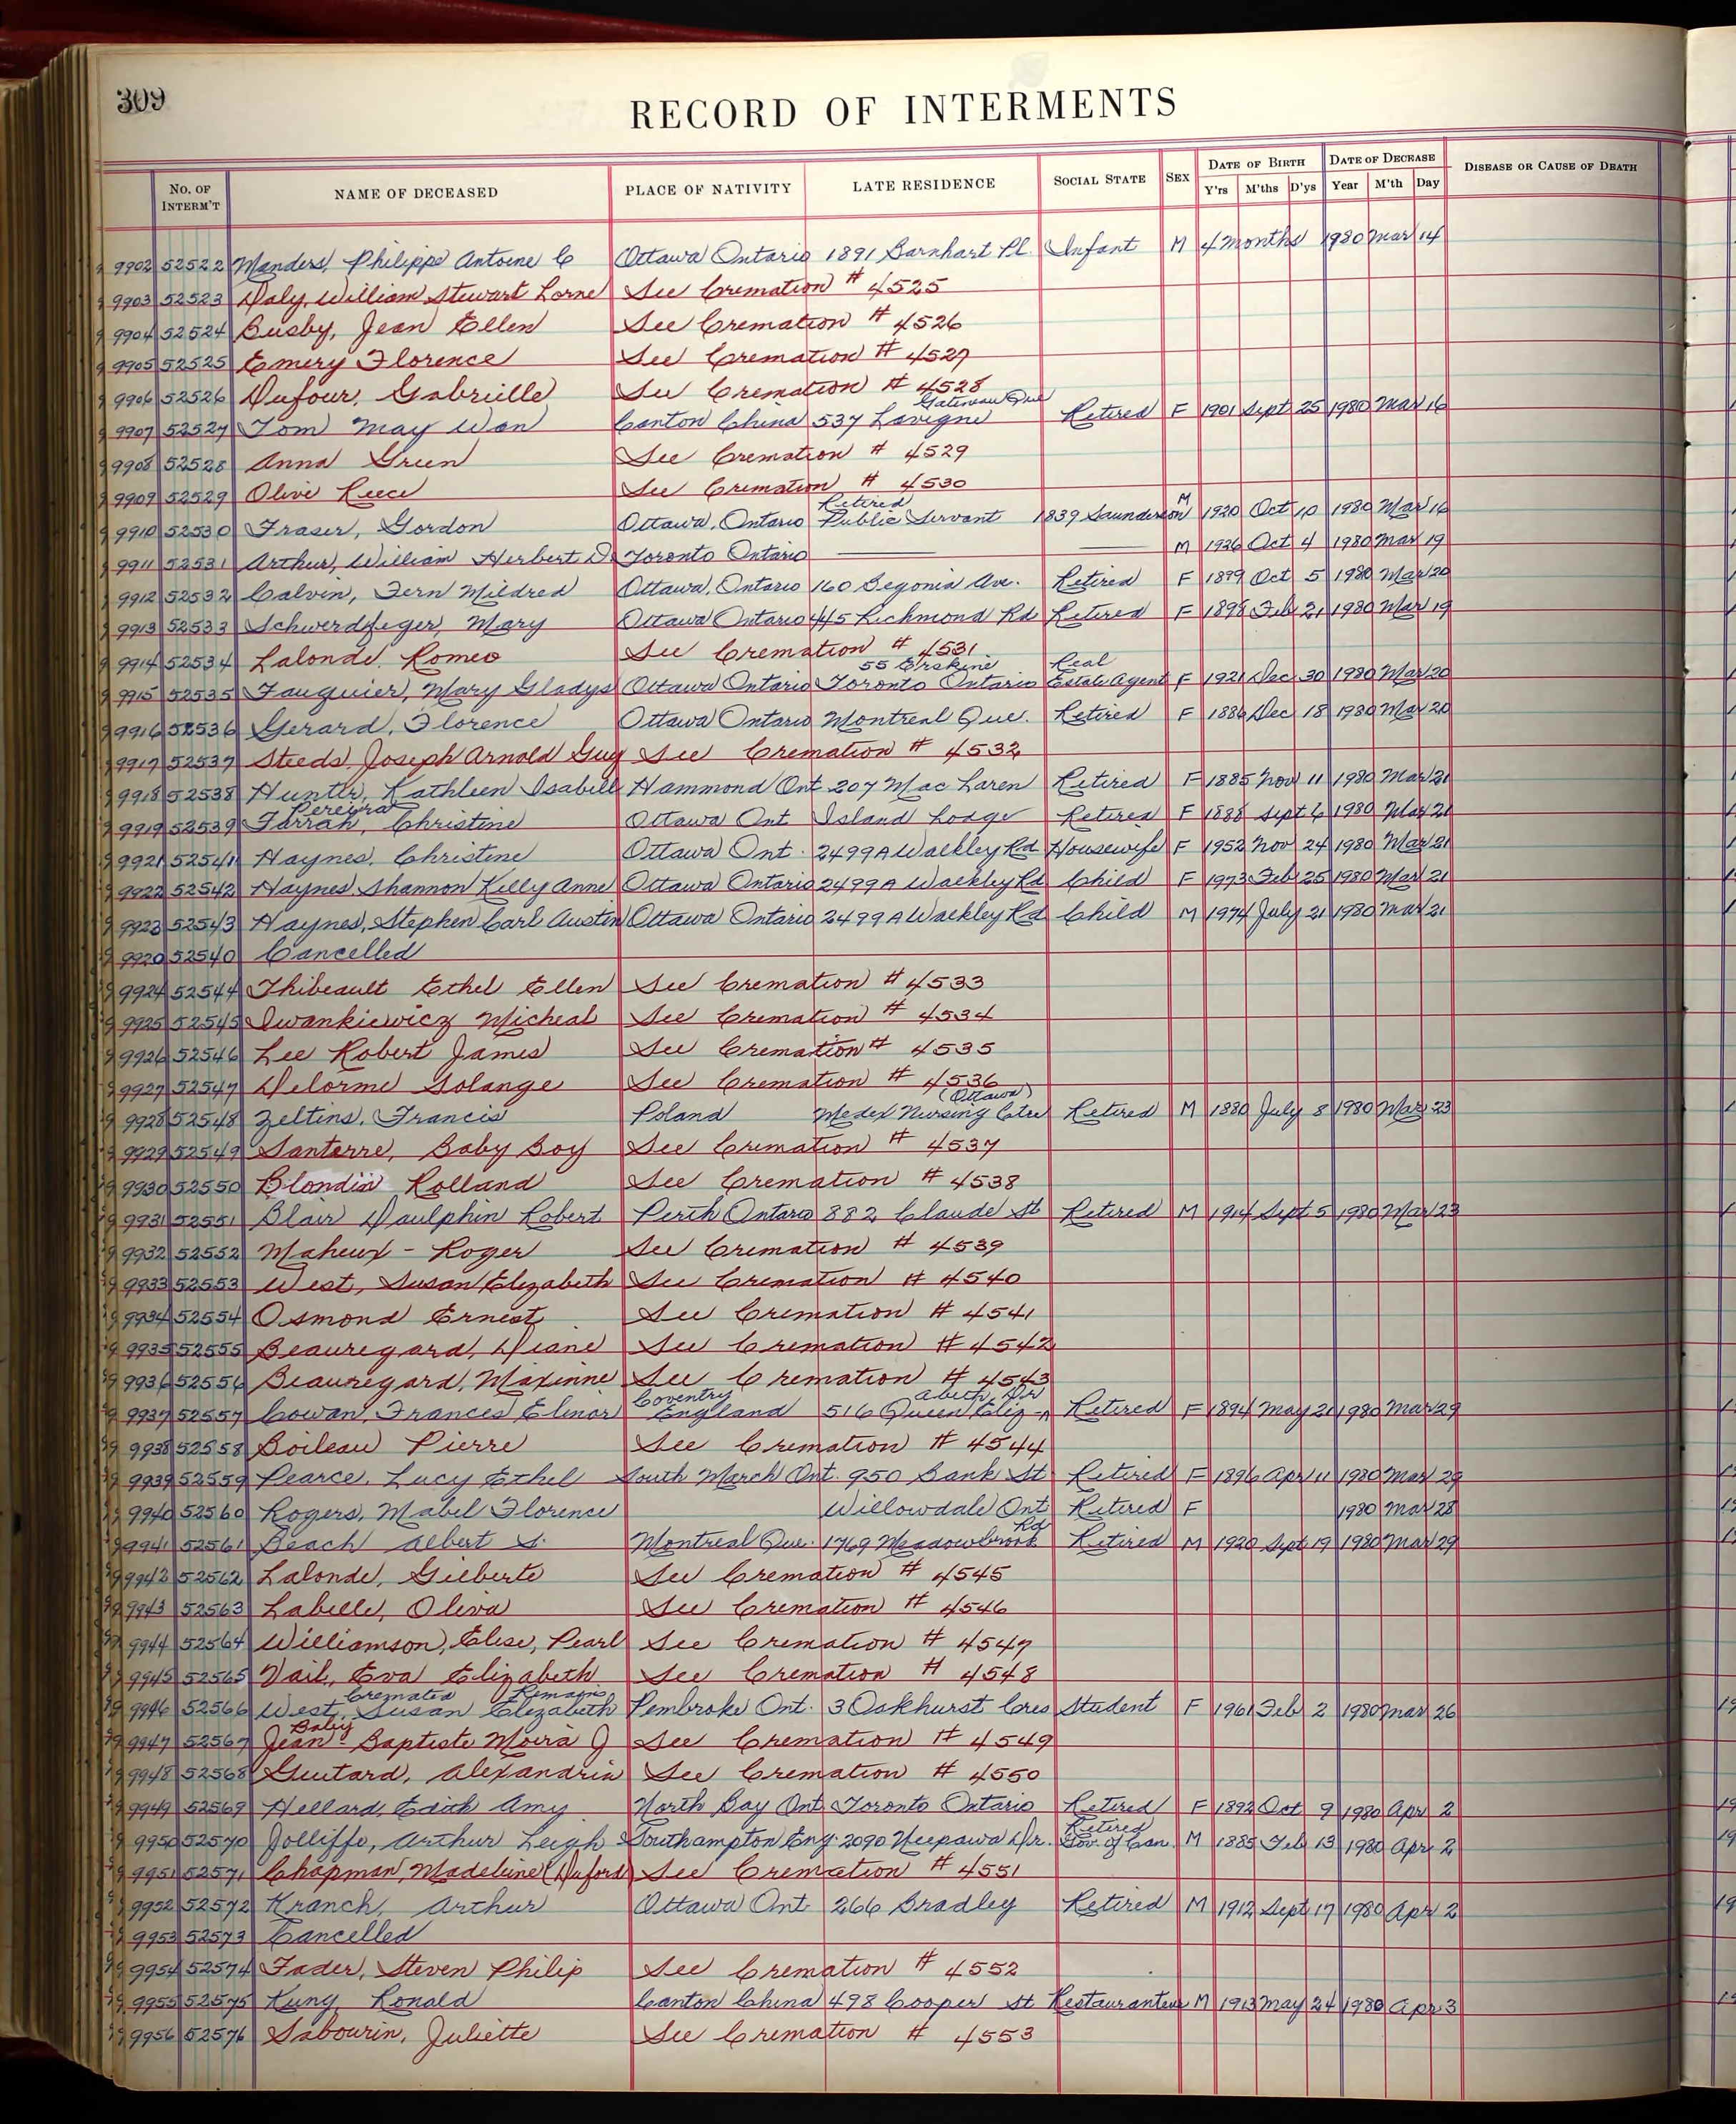 309
RECORD OF INTERMENTS
NO. OF INTERM'T NAME OF DECEASED PLACE OF NATIVITY LATE RESIDENCE SOCIAL STATE SEX DATE OF BIRTH Y'rs M'ths D'ys DATE OF DECEASE Year M'th Day DISEASE OR CAUSE OF DEATH
9902 52522 Manders, Philippe Antoine C Ottawa Ontario 1891 Barnhart Pl. Infant M 4 months 1980 Mar 14
9903 52523 Daly, William Stewart Lorne See Cremation # 4525
9904 52524 Busby, Jean Ellen See Cremation # 4526
9905 52525 Emery Florence See Cremation # 4527
9906 52526 Dufour, Gabrielle See Cremation # 4528
9907 52527 Tom May Wan Canton China 537 Lavigne Gatineau Que Retired F 1901 Sept 25 1980 Mar 16
9908 52528 Anna Green See Cremation # 4529
9909 52529 Olive Reece See Cremation # 4530
9910 52530 Fraser, Gordon Ottawa, Ontario Retired Public Servant 1839 Saunderson M 1920 Oct 10 1980 Mar 16
9911 52531 Arthur, William Herbert D. Toronto Ontario — — M 1926 Oct 4 1980 Mar 19
9912 52532 Calvin, Fern Mildred Ottawa, Ontario 160 Begonia Ave. Retired F 1899 Oct 5 1980 Mar 20
9913 52533 Schwerdfeger, Mary Ottawa Ontario 445 Richmond Rd Retired F 1898 Feb 21 1980 Mar 19
9914 52534 Lalonde, Romeo See Cremation # 4531
9915 52535 Fauquier, Mary Gladys Ottawa Ontario 55 Erskine Toronto Ontario Real Estate Agent F 1921 Dec 30 1980 Mar 20
9916 52536 Gerard, Florence Ottawa Ontario Montreal Que. Retired F 1886 Dec 18 1980 Mar 20
9917 52537 Steeds, Joseph Arnold Guy See Cremation # 4532
9918 52538 Hunter, Kathleen Isabell Hammond Ont 207 Mac Laren Retired F 1885 Nov 11 1980 Mar 21
9919 52539 Farrah, Pereira Christine Ottawa Ont Island Lodge Retired F 1888 Sept 6 1980 Mar 21
9921 52541 Haynes, Christine Ottawa Ont. 2499A Walkley Rd Housewife F 1952 Nov 24 1980 Mar 21
9922 52542 Haynes, Shannon Kelly Anne Ottawa Ontario 2499A Walkley Rd Child F 1973 Feb 25 1980 Mar 21
9923 52543 Haynes, Stephen Carl Austin Ottawa Ontario 2499A Walkley Rd Child M 1974 July 21 1980 Mar 21
9920 52540 Cancelled
9924 52544 Thibeault Ethel Ellen See Cremation # 4533
9925 52545 Iwankiewicz Micheal See Cremation # 4534
9926 52546 Lee Robert James See Cremation # 4535
9927 52547 Delorme Solange See Cremation # 4536
9928 52548 Zeltins, Francis Poland Medex Nursing Ctre (Ottawa) Retired M 1880 July 8 1980 Mar 23
9929 52549 Santerre, Baby Boy See Cremation # 4537
9930 52550 Blondin Rolland See Cremation # 4538
9931 52551 Blair Daulphin Robert Perth Ontario 882 Claude St Retired M 1914 Sept 5 1980 Mar 23
9932 52552 Maheux - Roger See Cremation # 4539
9933 52553 West, Susan Elizabeth See Cremation # 4540
9934 52554 Osmond Ernest See Cremation # 4541
9935 52555 Beauregard, Diane See Cremation # 4542
9936 52556 Beauregard, Maxinne See Cremation # 4543
9937 52557 Cowan, Frances Elinor Coventry England 516 Queen Eliz-abeth Dr Retired F 1894 May 21 1980 Mar 29
9938 52558 Boileau Pierre See Cremation # 4544
9939 52559 Pearce, Lucy Ethel South March Ont. 950 Bank St Retired F 1896 Apr 11 1980 Mar 29
9940 52560 Rogers, Mabel Florence Willowdale Ont Retired F 1980 Mar 28
9941 52561 Beach Albert S. Montreal Que. 1769 Meadowbrook Rd Retired M 1920 Sept 19 1980 Mar 29
9942 52562 Lalonde, Gilberte See Cremation # 4545
9943 52563 Labelle, Oliva See Cremation # 4546
9944 52564 Williamson, Elise, Pearl See Cremation # 4547
9945 52565 Vail, Eva Elizabeth See Cremation # 4548
9946 52566 West, Susan Elizabeth Cremated Remains Pembroke Ont. 3 Oakhurst Cres Student F 1961 Feb 2 1980 Mar 26
9947 52567 Jean-Baptiste Baby Moira J See Cremation # 4549
9948 52568 Guitard, Alexandria See Cremation # 4550
9949 52569 Hellard, Edith Amy North Bay Ont Toronto Ontario Retired F 1892 Oct 9 1980 Apr 2
9950 52570 Jolliffe, Arthur Leigh Southampton Eng. 2090 Neepawa Dr. Retired Gov. of Can. M 1885 Feb 13 1980 Apr 2
9951 52571 Chapman, Madeleine (Duford) See Cremation # 4551
9952 52572 Kranch, Arthur Ottawa Ont 266 Bradley Retired M 1912 Sept 17 1980 Apr 2
9953 52573 Cancelled
9954 52574 Fader, Steven Philip See Cremation # 4552
9955 52575 Kung Ronald Canton China 498 Cooper St Restauranteur M 1913 May 24 1980 Apr 3
9956 52576 Sabourin, Juliette See Cremation # 4553